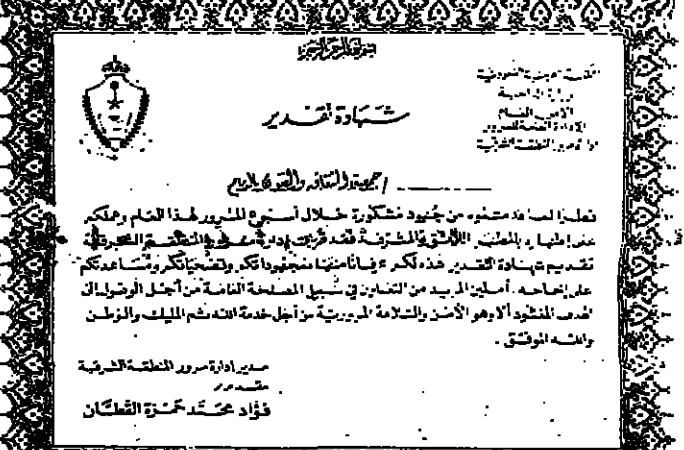 بسم الله الرحمن الرحيم
المملكة العربية السعودية
وزارة الداخلية
الأمن العام
الإدارة العامة للمرور
إدارة مرور المنطقة الشرقية
شهادة تقدير
جمعية الثقافة والفنون بالدمام
نظرًا لما قدمتموه من جهود مشكورة خلال أسبوع المرور لهذا العام وعملكم
على إظهاره بالمظهر اللائق والمشرف فقد قررت إدارة مرور المنطقة الشرقية
تقديم شهادة التقدير هذه لكم عرفانًا منها بمجهوداتكم وتضحياتكم ومساعدتكم
على إنجاحه. آملين المزيد من التعاون في سبيل المصلحة العامة من أجل الوصول إلى
الهدف المنشود ألا وهو الأمن والسلامة المرورية من أجل خدمة الله ثم المليك والوطن
والله الموفق.
مدير إدارة مرور المنطقة الشرقية
فؤاد محمد حمزة القطان